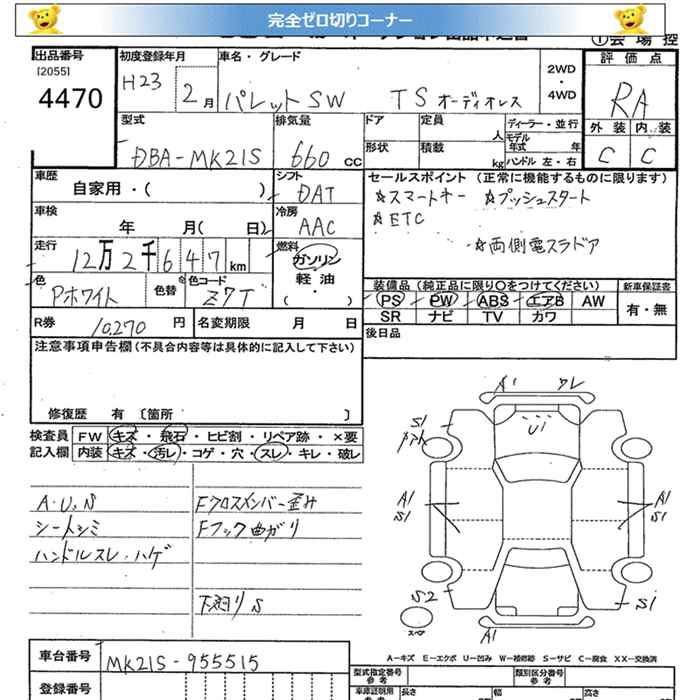 完全ゼロ切りコーナー
①会場控
出品番号
[2055]
4470
初度登録年月
H23 2月
車名・グレード
パレットSW TS オーディオレス
2WD
・
4WD
評価点
RA
外装 内装
C C
型式
DBA-MK21S
排気量
660 cc
ドア
定員
人
形状
積載
kg
ディーラー・並行
モデル
年式 年
ハンドル 左・右
車歴
自家用・( )
シフト
DAT
車検
年 月( 日)
冷房
AAC
走行
12万2千647km
燃料
ガソリン
軽油
( ・ )
色
Pホワイト
色替
色コード
Z7T
R券
10270 円
名変期限 月 日
セールスポイント (正常に機能するものに限ります)
☆スマートキー ☆プッシュスタート
☆ETC
☆両側電スラドア
装備品 (純正品に限り〇をつけてください)
新車保証書
PS PW ABS エアB AW
SR ナビ TV カワ
有・無
後日品
注意事項申告欄 (不具合内容等は具体的に記入して下さい)
修復歴 有 [箇所 ]
検査員
記入欄
FW キズ・飛石・ヒビ割・リペア跡・×要
内装 キズ・汚レ・コゲ・穴・スレ・キレ・破レ
A・U,S
シートシミ
ハンドルスレ・ハゲ
Fクロスメンバー歪み
Fフック曲がり
下廻りS
A1
S1
U1
A1
S1
A1
S1
S2
S1
スペア
A1
A-キズ E-エクボ U-凹み W-補修跡 S-サビ C-腐食 XX-交換済
車台番号
MK21S-955515
登録番号
型式指定番号
参考
類別区分番号
参考
車庫証明用
参考
長さ
幅
高さ